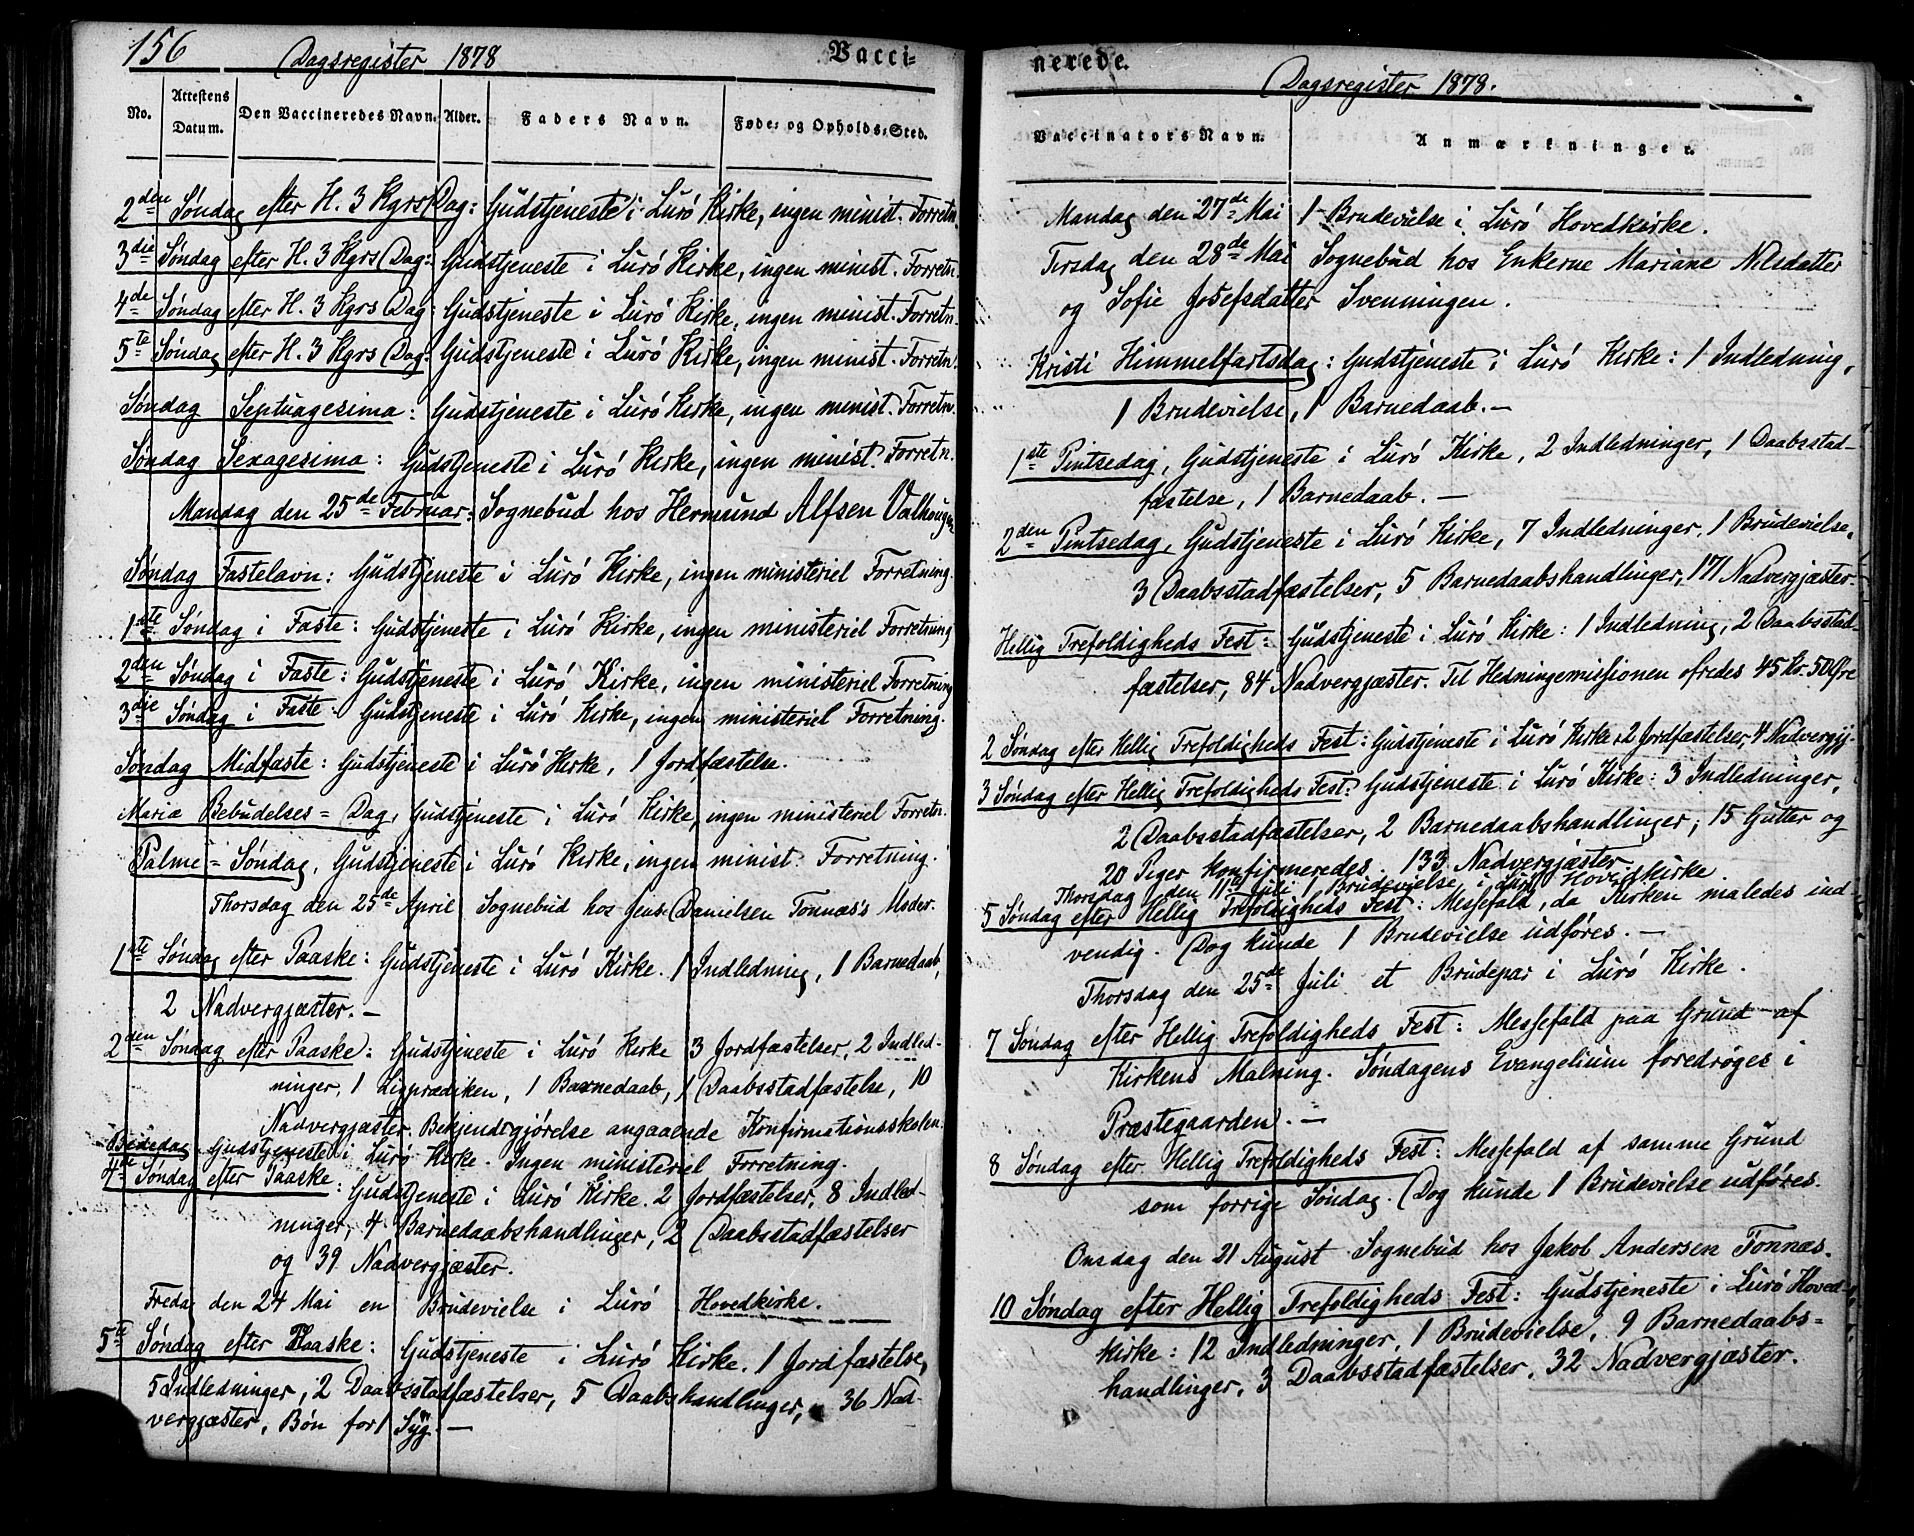 156
Dagsregister 1878
Vacci=
No.
Attestens Datum.
Den Vaccineredes Navn.
Alder.
Faders Navn.
Føde= og Opholds=Sted.
2den Søndag efter H. 3 Kgrs Dag: Gudstjeneste i Lurö Kirke, ingen minist. Forretn.
3die Søndag efter H. 3 Kgrs Dag: Gudstjeneste i Lurö Kirke, ingen minist. Forretn.
4de Søndag efter H. 3 Kgrs Dag: Gudstjeneste i Lurö Kirke, ingen minist. Forretn.
5te Søndag efter H. 3 Kgrs Dag: Gudstjeneste i Lurö Kirke, ingen minist. Forretn.
Søndag Septuagesima: Gudstjeneste i Lurö Kirke, ingen minist. Forretn.
Søndag Sexagesima: Gudstjeneste i Lurö Kirke, ingen minist. Forretn.
Mandag den 25de Februar: Sognebud hos Hermund Alfsen Valhaugen
Søndag Fastelavn: Gudstjeneste i Lurö Kirke, ingen ministeriel Forretning.
1ste Søndag i Faste: Gudstjeneste i Lurö Kirke, ingen ministeriel Forretning
2den Søndag i Faste: Gudstjeneste i Lurö Kirke, ingen ministeriel Forretning
3die Søndag i Faste. Gudstjeneste i Lurö Kirke, ingen ministeriel Forretning.
Søndag Midfaste: Gudstjeneste i Lurö Kirke, 1 Jordfæstelse.
Mariæ Bebudelses=Dag, Gudstjeneste i Lurö Kirke, ingen ministeriel Forretn.
Palme=Søndag, Gudstjeneste i Lurö Kirke, ingen minist. Forretning.
Thorsdag den 25de April Sognebud hos Jens Danielsen Tonnæs's Moder.
1ste Søndag efter Paaske: Gudstjeneste i Lurö Kirke. 1 Indledning, 1 Barnedaab,
2 Nadvergjæster. —
2den Søndag efter Paaske: Gudstjeneste i Lurö Kirke 3 Jordfæstelser, 2 Indled-
ninger, 1 Ligprædiken, 1 Barnedaab, 1 Daabsstadfæstelse, 10
Nadvergjæster. Bekjendtgjørelse angaaende Konfirmationsskolen.
Bededag. Gudstjeneste i Lurö Kirke. Ingen ministeriel Forretning.
4de Søndag efter Paaske: Gudstjeneste i Lurö Kirke. 2 Jordfæstelser, 8 Indled-
ninger, 4 Barnedaabshandlinger, 2 Daabsstadfæstelser
og 39 Nadvergjæster.
Fredag den 24 Mai en Brudevielse i Lurö Hovedkirke.
5te Søndag efter Paaske: Gudstjeneste i Lurö Kirke. 1 Jordfæstelse,
5 Indledninger, 2 Daabsstadfæstelser, 5 Daabshandlinger, 36 Nad-
vergjæster, Bön for 1 Syg. —
nerede.
Dagsregister 1878.
Vaccinators Navn.
Anmærkninger.
Mandag den 27de Mai 1 Brudevielse i Lurö Hovedkirke.
Tirsdag den 28de Mai Sognebud hos Enkerne Mariane Nilsdatter
og Sofie Josefsdatter Svenningen.
Kristi Himmelfartsdag: Gudstjeneste i Lurö Kirke: 1 Indledning,
1 Brudevielse, 1 Barnedaab. —
1ste Pintsedag, Gudstjeneste i Lurö Kirke, 2 Indledninger, 1 Daabsstad-
fæstelse, 1 Barnedaab. —
2den Pintsedag, Gudstjeneste i Lurö Kirke, 7 Indledninger, 1 Brudevielse,
3 Daabsstadfæstelser, 5 Barnedaabshandlinger, 171 Nadvergjæster.
Hellig Trefoldigheds Fest: Gudstjeneste i Lurö Kirke: 1 Indledning, 2 Daabsstad-
fæstelser, 84 Nadvergjæster. Til Hedningemissionen ofredes 45 Kr. 50 Øre
2 Søndag efter Hellig Trefoldigheds Fest: Gudstjeneste i Lurö Kirke, 2 Jordfæstelser, 4 Nadvergj-
3 Søndag efter Hellig Trefoldigheds Fest: Gudstjeneste i Lurö Kirke: 3 Indledninger,
2 Daabsstadfæstelser, 2 Barnedaabshandlinger; 15 Gutter og
20 Piger konfirmeredes. 133 Nadvergjæster.
Thorsdag den 11te Juli 1 Brudevielse i Lurö Hovedkirke.
5 Søndag efter Hellig Trefoldigheds Fest: Messefald, da Kirken maledes ind-
vendig. Dog kunde 1 Brudevielse udføres. —
Thorsdag den 25de Juli et Brudepar i Lurö Kirke.
7 Søndag efter Hellig Trefoldigheds Fest: Messefald paa Grund af
Kirkens Malning. Søndagens Evangelium foredroges i
Præstegaarden. —
8 Søndag efter Hellig Trefoldigheds Fest: Messefald af samme Grund
som forrige Søndag. Dog kunde 1 Brudevielse udføres.
Onsdag den 21 August Sognebud hos Jakob Andersen Tonnæs.
10 Søndag efter Hellig Trefoldigheds Fest: Gudstjeneste i Lurö Hoved-
kirke: 12 Indledninger, 1 Brudevielse, 9 Barnedaabs=
handlinger, 3 Daabsstadfæstelser, 32 Nadvergjæster.